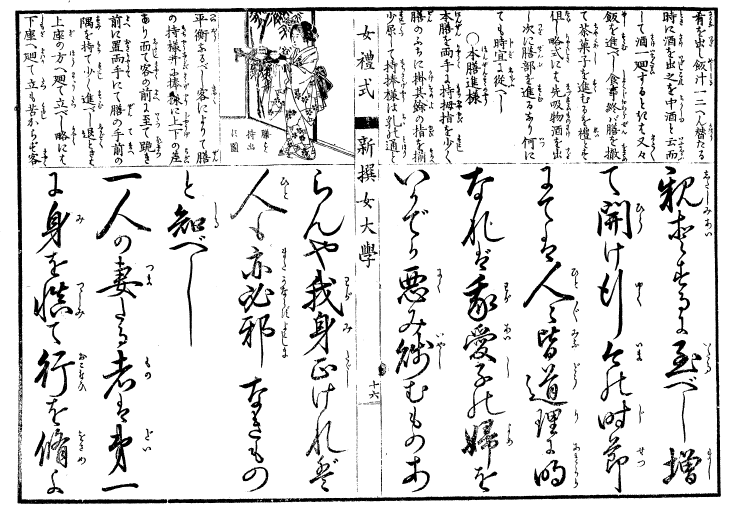 肴を出し飯汁一二へん替たる
時に酒を出之を中酒と云而
して酒一廻するときは又々
飯を進べし食事終ば膳を撤
て茶菓子を進むるを禮とす
但し略式にハ先吸物酒を出
し次に膳部を進るあり何に
ても時宜に從へし
○本膳進様
本膳を両手に持拇指を少く
膳のふちに掛其餘の指を揃
少し原して持捧様ハ乳に通と
女禮式
新撰女大學
十六
膳を
持出
に圖
平衡なるべし客によりて膳
の持様并に捧様に上下の座
あり而て客の前に至て跪き
前に置両手にて膳の手前の
隅を持て少く進べし退ときは
上座の方へ廻て立べし略にハ
下座へ廻て立も苦からず客
親あいするに至べし増
て開け行く今の時節
にてハ人々皆道理に明
なれば我愛子の婦を
いかでか悪み賤むものあ
らんや我身正けれバ
人も亦必邪なきもの
と知べし
一人の妻たる者ハ第一
に身を慎て行を脩よ